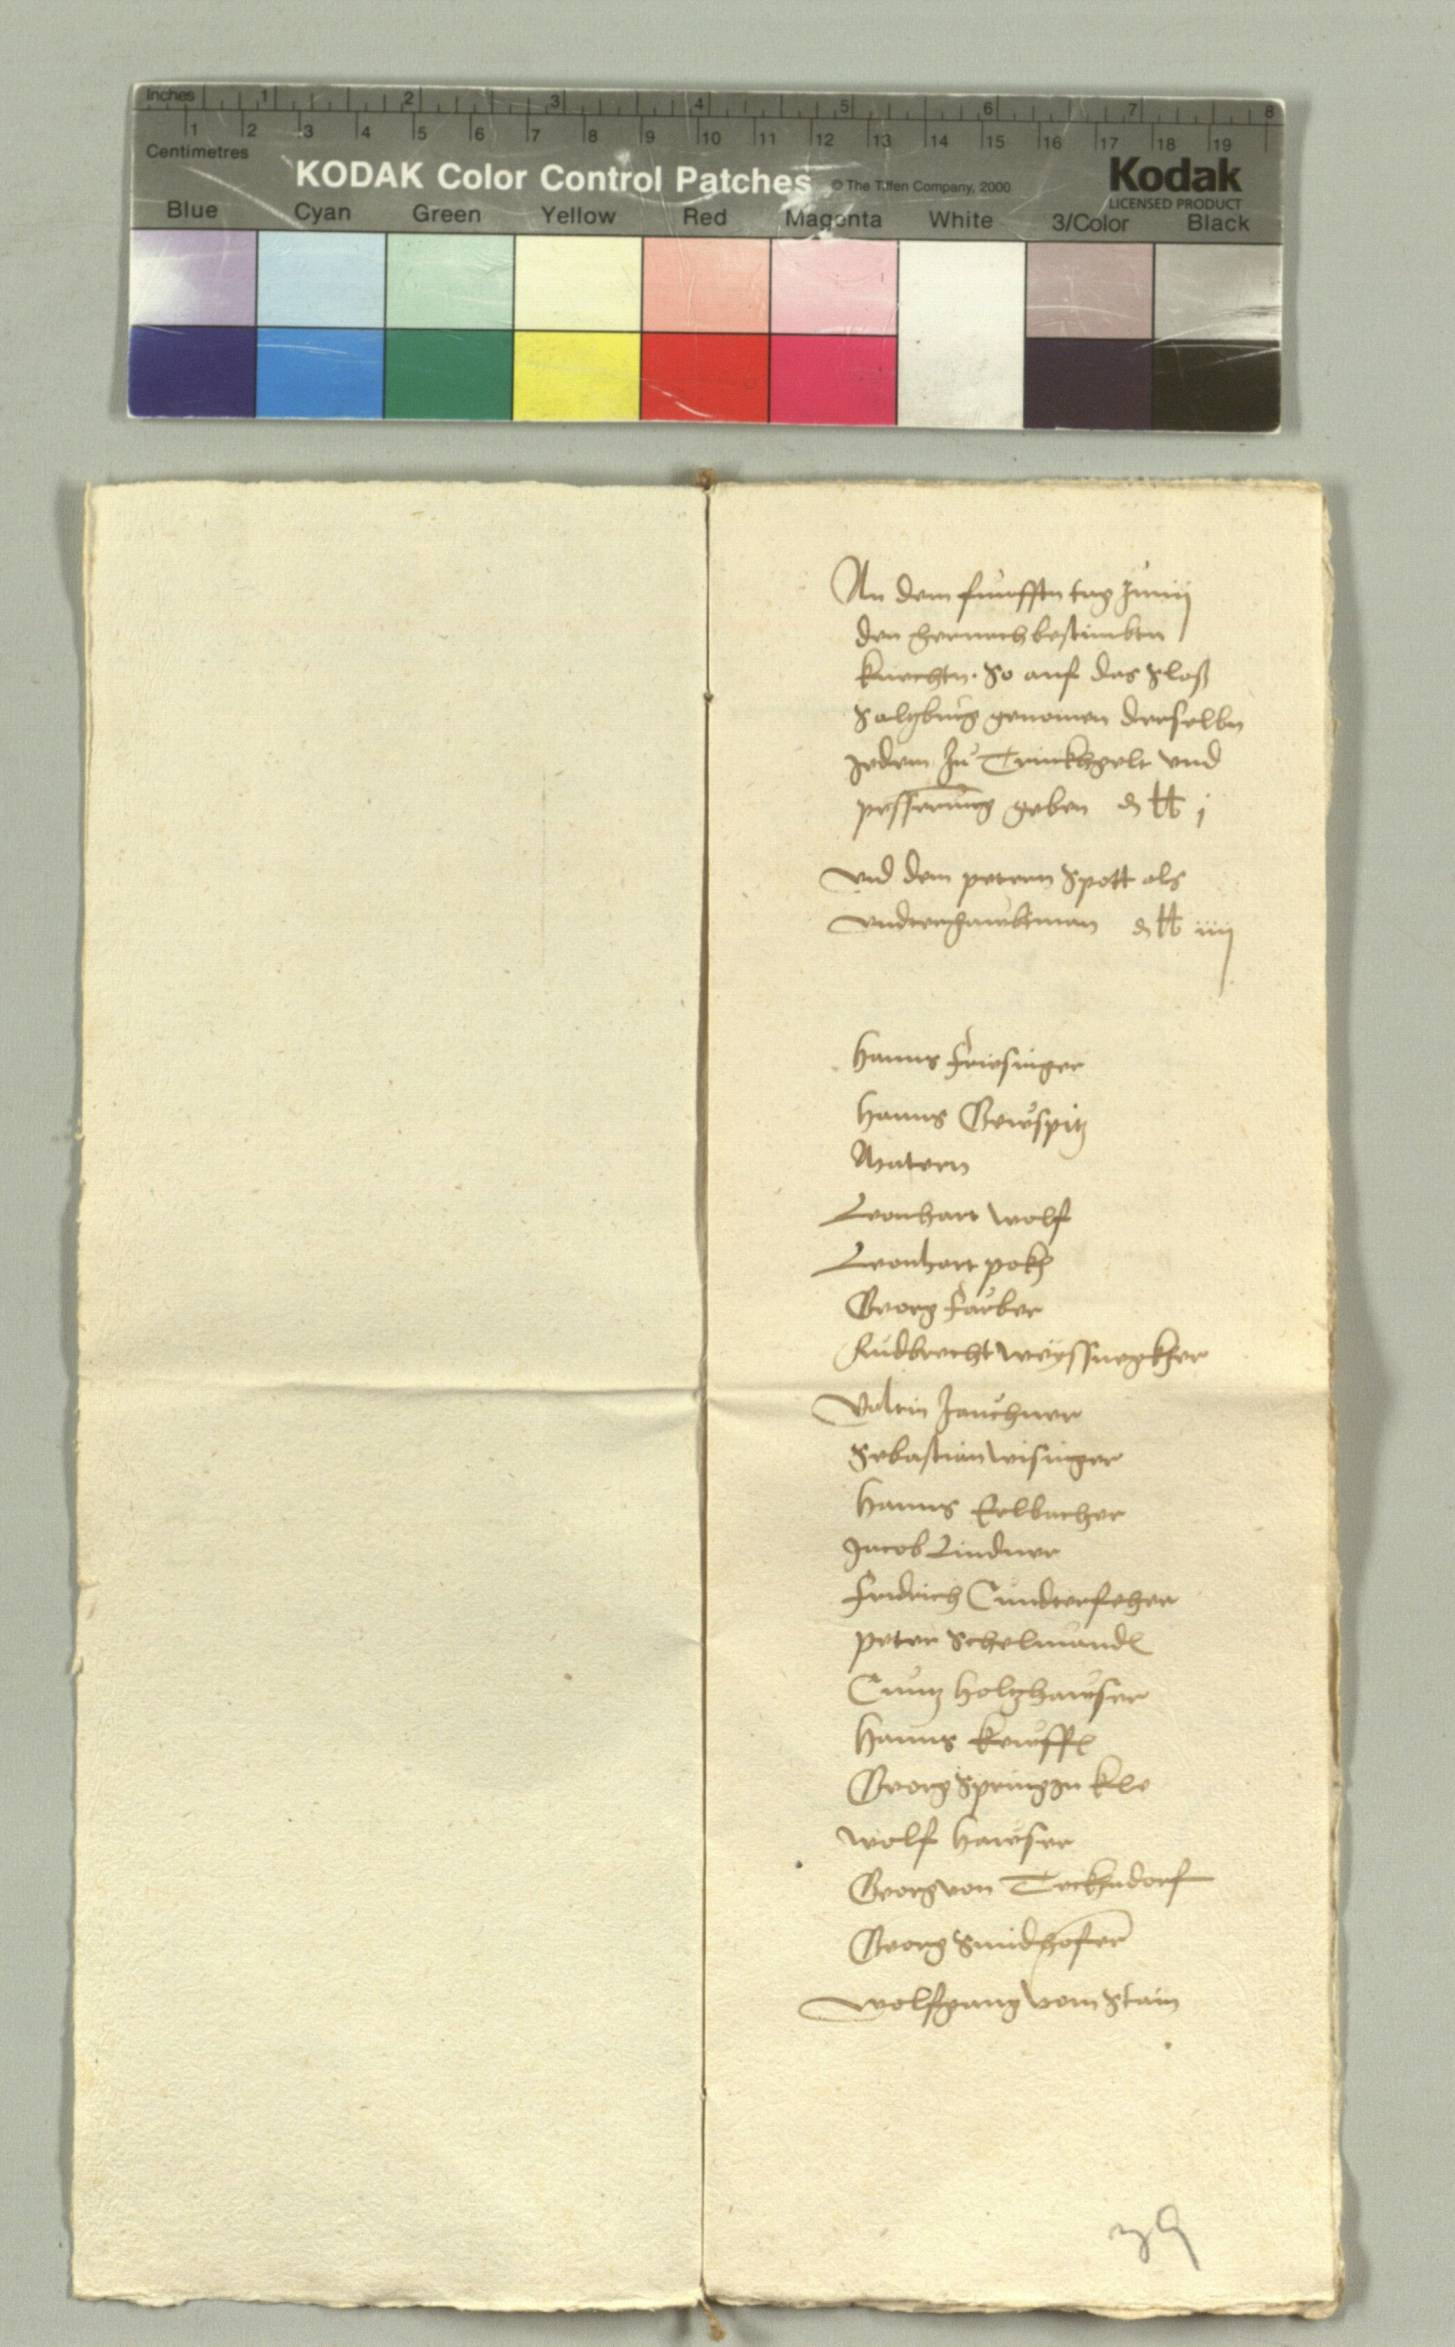 Inches 1 2 3 4 5 6 7 8
1 2 3 4 5 6 7 8 9 10 11 12 13 14 15 16 17 18 19
Centimetres
KODAK Color Control Patches © The Tiffen Company, 2000 Kodak
LICENSED PRODUCT
Blue Cyan Green Yellow Red Magenta White 3/Color Black
An dem funfften tag Junij
den hernachbestimbten
knechtn. So auf das Sloß
Saltzburg genomen derselbn
yedem zu Trinkhgelt vnd
pesserung geben ₰ ℔ j
vnd dem petern Spott als
vnderhawbtman ₰ ℔ iiij
Hanns Friesinger
Hanns Gewspitz
Matern
Leonhart Wolf
Leonhart pokh
Georg Farber
Rudbrecht Weyssnegkher
Valtin Jauchner
Sebastian Wisinger
Hanns Erlbacher
Jacob Lindner
Fridrich Cundterfeher
peter Schelmandl
Cuntz Holtzhawser
Hanns Kewffl
Georg Springin kle
Wolf Hawser
Georg von Teckhndorf
Georg Smidhofer
Wolfgang vom Stain
39